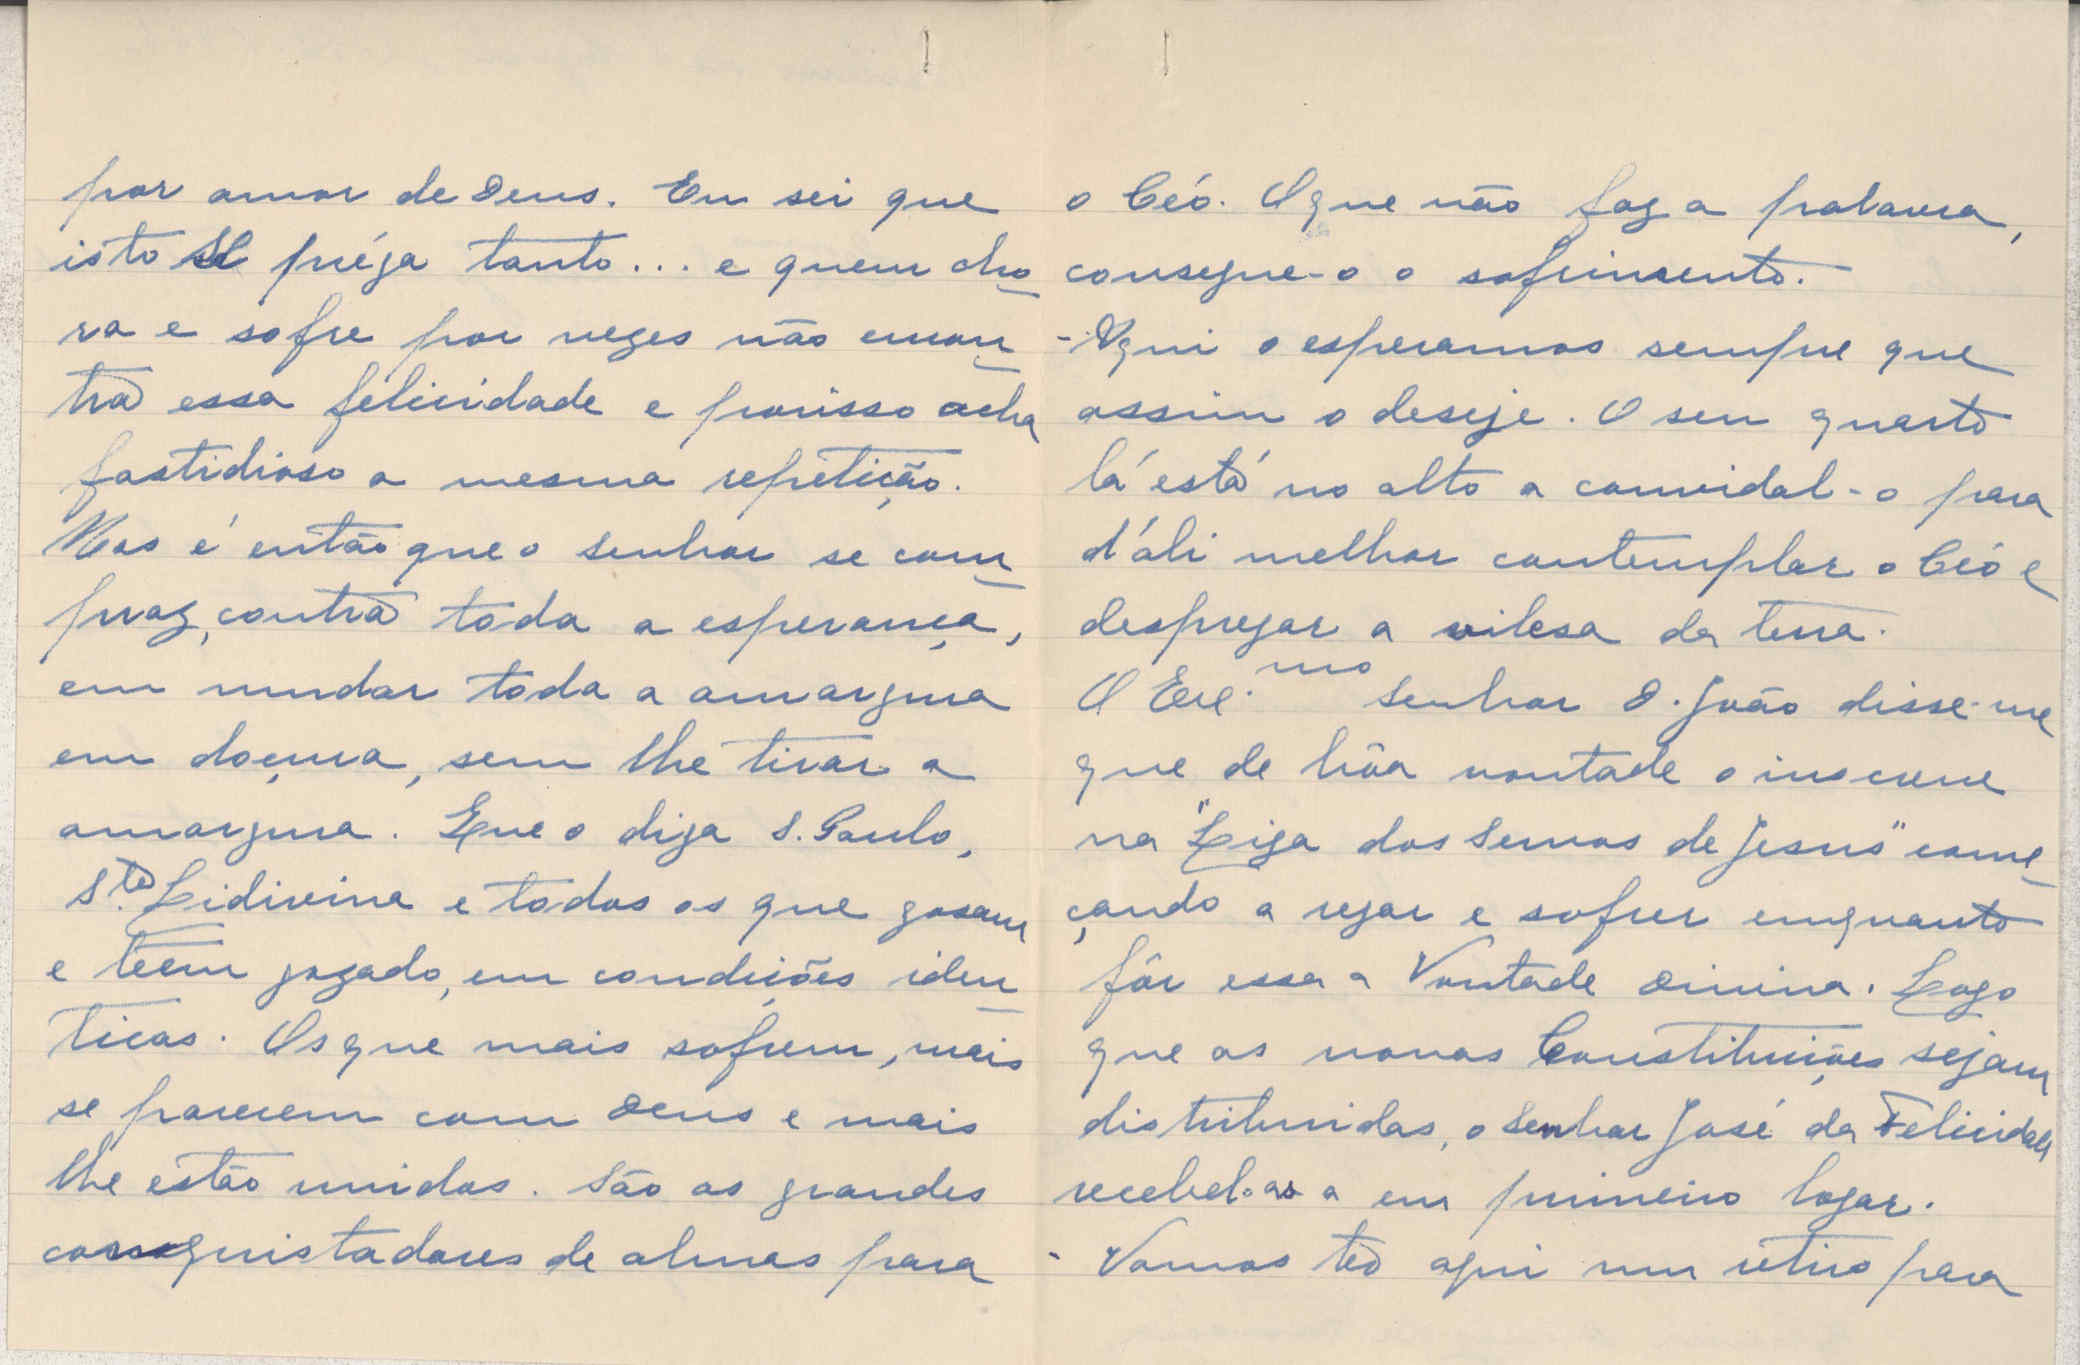 por amor de Deus. Eu sei que
isto se préga tanto... e quem cho
ra e sofre por vezes não encon
tra essa felicidade e porisso acha
fastidioso a mesma repetição.
Mas é então que o Senhor se com
praz, contra toda a esperança,
em mudar toda a amargura
em doçura, sem lhe tirar a
amargura. Que o diga S. Paulo,
S.ta Lidivina e todos os que gosam
e teem gozado, em condições iden
ticas. Os que mais sofrem, mais
se parecem com Deus e mais
lhe estão unidos. São os grandes
conquistadores de almas para
o Céo. O que não faz a palavra,
consegue-o o sofrimento.
- Aqui o esperamos sempre que
assim o deseje. O seu quarto
lá está no alto a convidal-o para
d'áli melhor contemplar o Céo e
desprezar a vilesa da terra.
O Exc.mo Senhor D. João disse-me
que de bôa vontade o inscreve
na "Liga dos Servos de Jesus" come
çando a rezar e sofrer emquanto
fôr essa a Vontade Divina. Logo
que as novas Constituições sejam
distribuidas, o Senhor José da Felicidade
recebel-as a em primeiro logar.
- Vamos ter aqui um retiro para